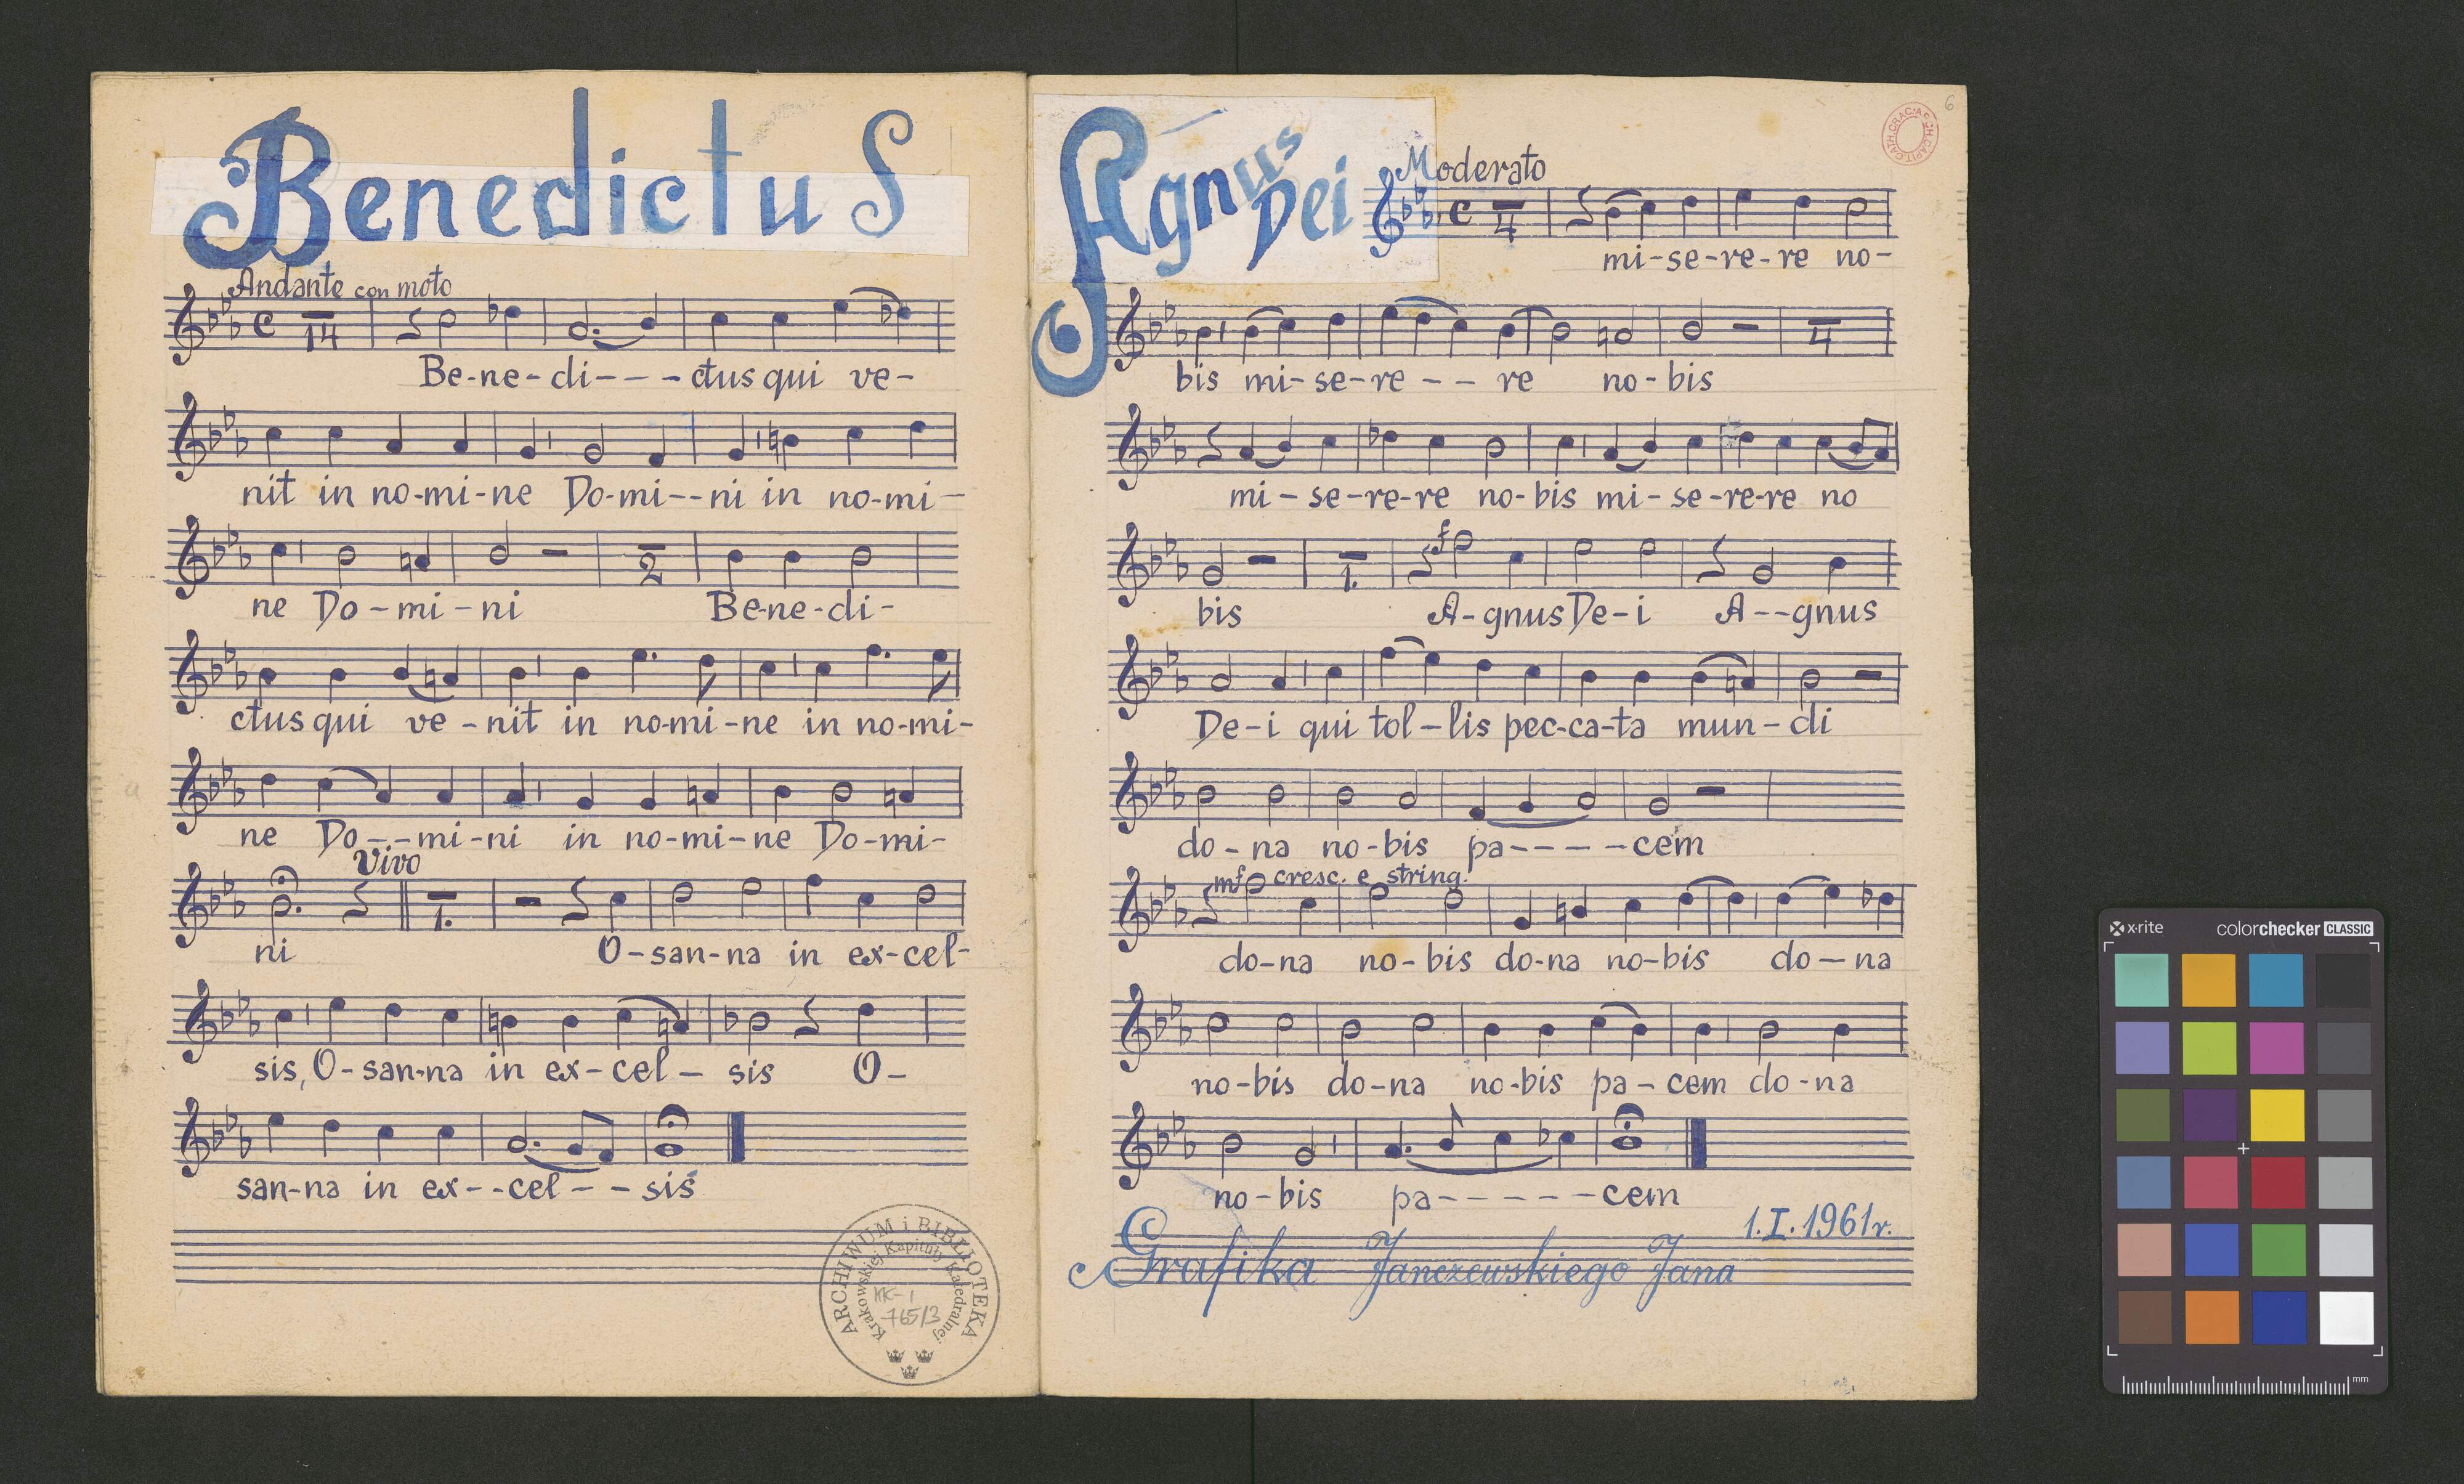 Benedictus
Andante con moto
14
Be-ne-di---ctus qui ve-
nit in no-mi-ne Do-mi--ni in no-mi-
ne Do-mi-ni Be-ne-di-
2
ctus qui ve-nit in no-mi-ne in no-mi-
ne Do--mi-ni in no-mi-ne Do-mi-
Vivo
1.
ni O-san-na in ex-cel-
sis, O-san-na in ex-cel-sis O-
san-na in ex--cel--sis
ARCHIWUM i BIBLIOTEKA
Krakowskiej Kapituły Katedralnej
KK-I
765/3
6
Agnus Dei
Moderato
4
mi-se-re-re no-
4
bis mi-se-re--re no-bis
mi-se-re-re no-bis mi-se-re-re no
f
1.
bis A-gnus De-i A--gnus
De-i qui tol-lis pec-ca-ta mun-di
do-na no-bis pa----cem
mf cresc. e string.
do-na no-bis do-na no-bis do-na
no-bis do-na no-bis pa-cem do-na
no-bis pa-----cem
1.I.1961r.
Grafika Janczewskiego Jana
x-rite colorchecker CLASSIC
mm